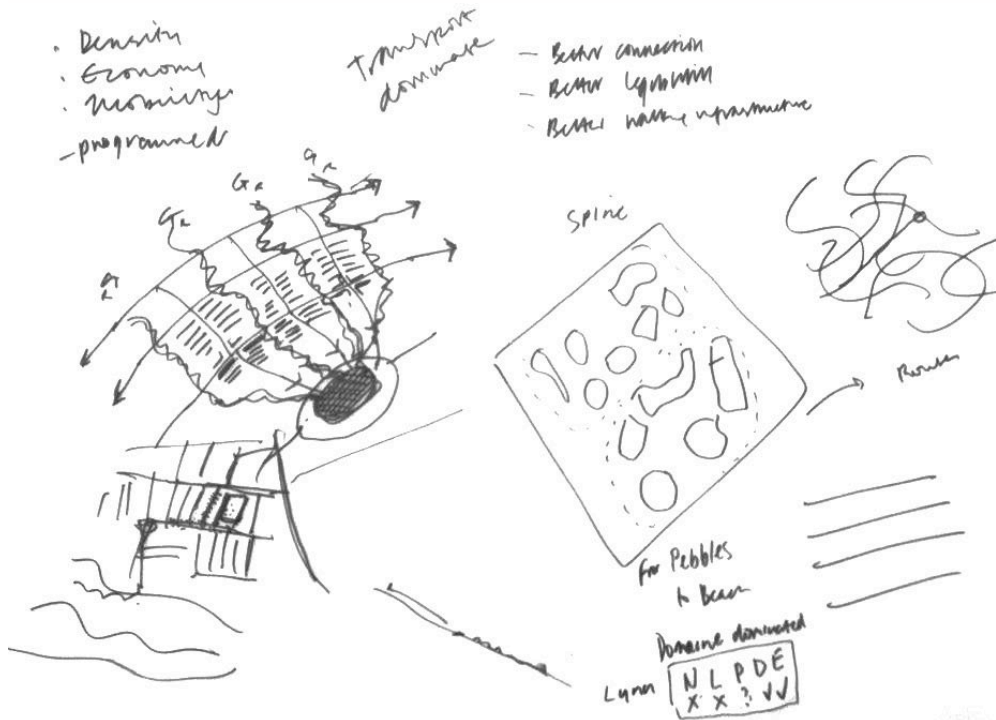 · Density
· Economy
· Mobility
- programmed
Transport
dominate
- Better connection
- Better legibility
- Better walking infrastructure
Gr
Gr
Gr
Gr
Spine
Route
For Pebbles
to Beach
Domaine dominated
N L P D E
x x ? ✓ ✓